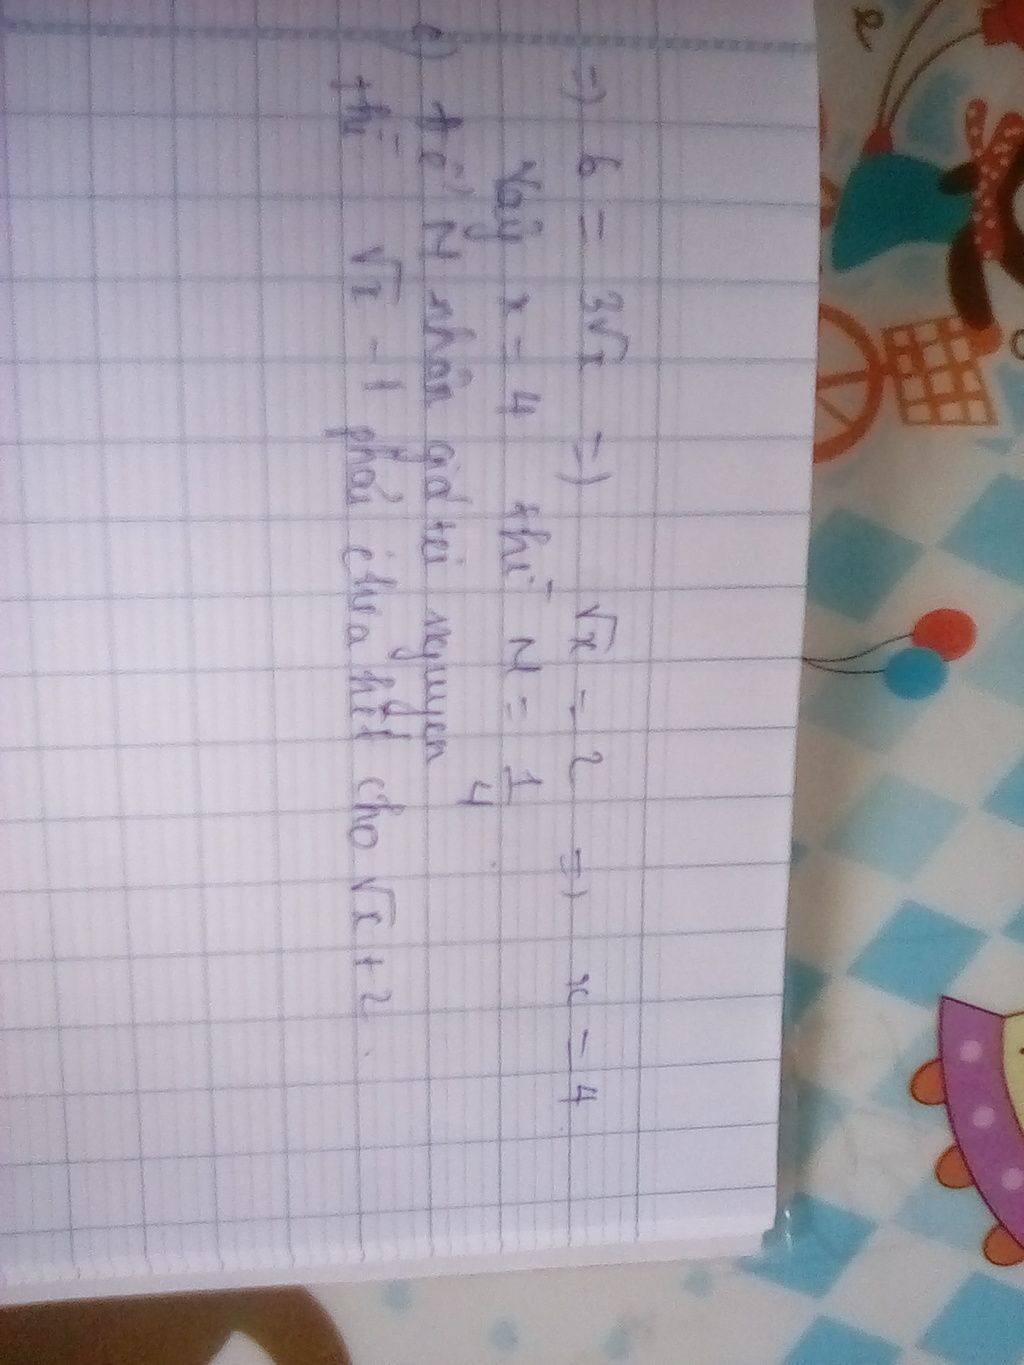 =) 6 = 3√x =) √x = 2 =) x = 4
Vậy x = 4 thì N = 1/4
c) Để N nhận giá trị nguyên
thì √x - 1 phải chia hết cho √x + 2.